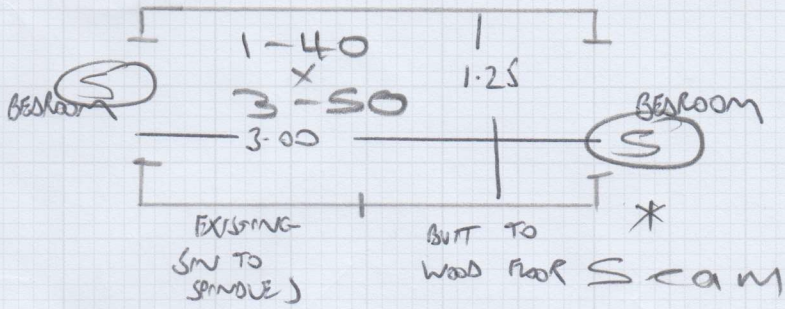 1-40
x
3-50
1.25
S
BEDROOM
BEDROOM
S
3.00
EXISTING
TO
SPINDLES
BUTT TO
WOOD FLOOR
*
Seam